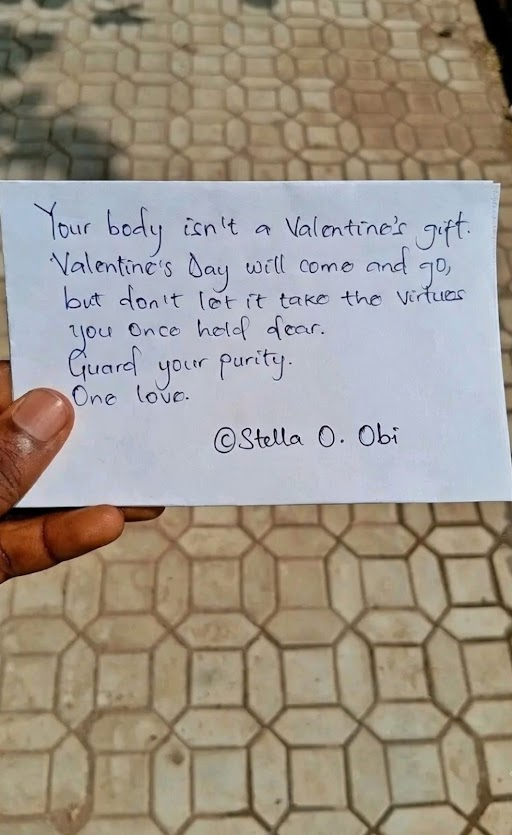 Your body isn't a Valentine's gift.
Valentine's Day will come and go,
but don't let it take the virtues
you once held dear.
Guard your purity.
One love.
©Stella O. Obi